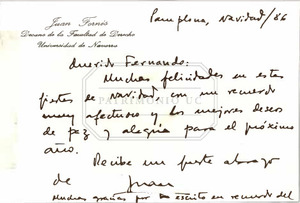 Juan Fornés
Decano de la Facultad de Derecho
Universidad de Navarra
Pamplona, Navidad/86
Querido Fernando:
Muchas felicidades en estas
fiestas de Navidad, con un recuerdo
muy afectuoso y los mejores deseos
de paz y alegría para el próximo
año.
Recibe un fuerte abrazo
de Juan
Muchas gracias por tu escrito en recuerdo del
PATRIMONIO UC